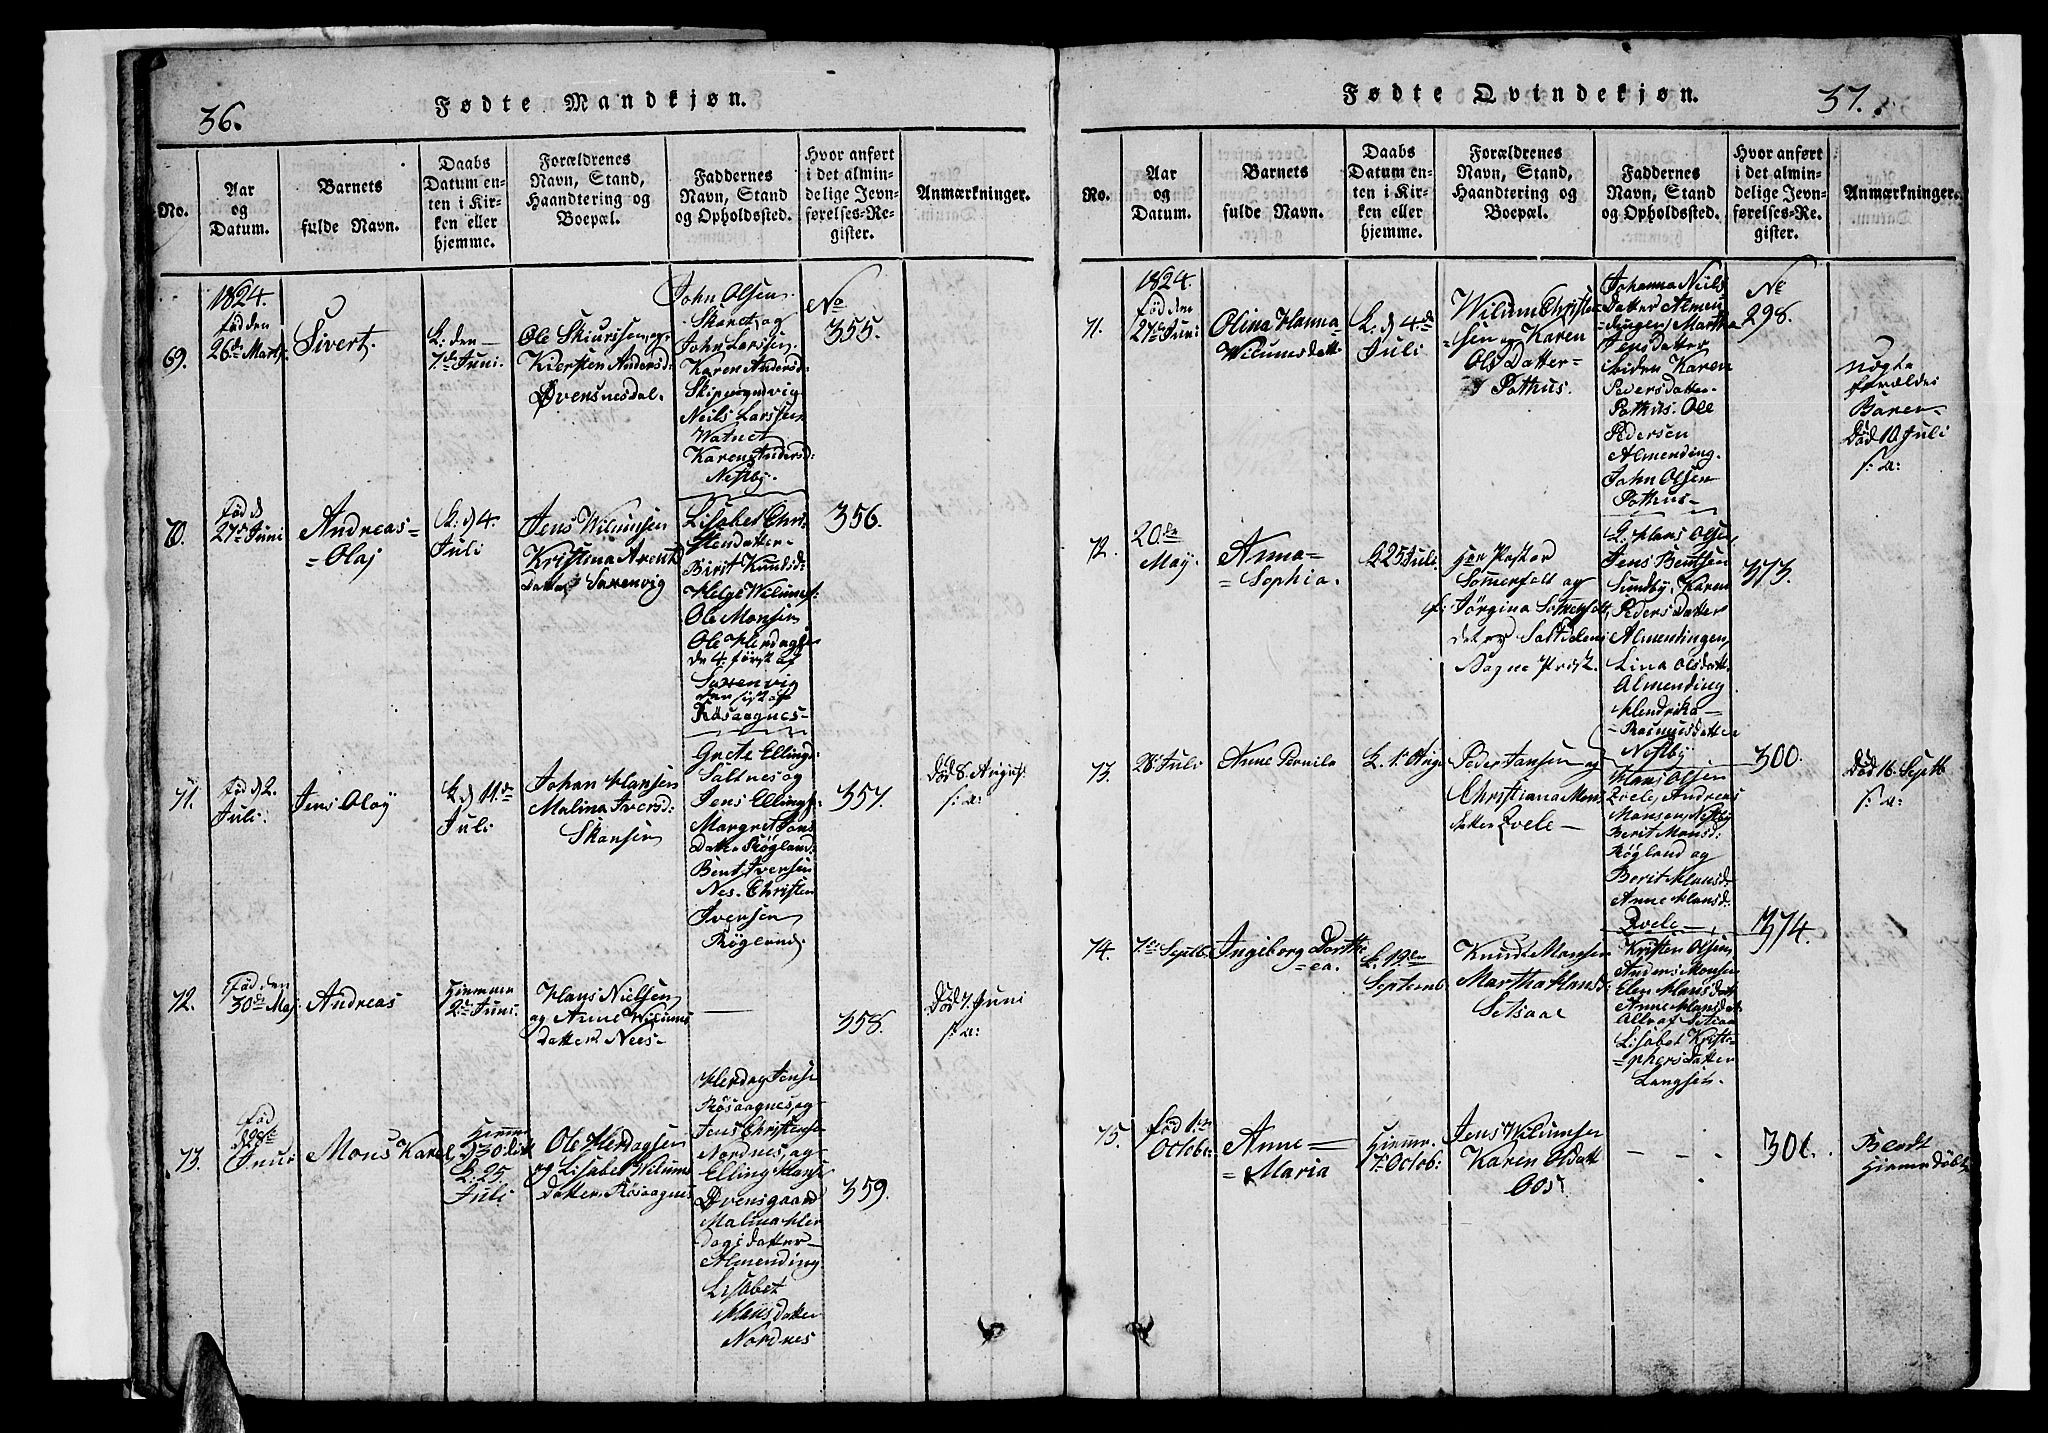 36.
Fødte Mandkjøn.
No.
Aar
og
Datum.
Barnets
fulde Navn.
Daabs
Datum en-
ten i Kir-
ken eller
hjemme.
Forældrenes
Navn, Stand,
Haandtering og
Boepæl.
Faddernes
Navn, Stand
og Opholdssted.
Hvor anført
i det almin-
delige Jevn-
førelses-Re-
gister.
Anmærkninger.
69.
1824.
fød den
26de Marts
Sivert.
K: den
7de Juni.
Ole Skiurssen og
Kiersten Anders d:
Øvensnesdal.
John Olsen
Skaret og
John Larssen
Karen Andersd:
Skipmandvig
Neils Larssen
Watnet
Karen Andersd:
Nestby.
No
355.
70.
fød d
27de Juni
Andreas
=Olaj
K: d 4.
Juli
Jens Wilumsen
Kristina Arent
Datter Saxenvig
Lisabet Chri-
stendatter
Birit Knudsd:
Helge Wilums:
Ole Monsen
Ole Herdags:
de 4 først af
Saxenvig
den sist af
Røsaagnes
356.
71.
fød d 2.
Juli.
Jens Olaÿ
K d 11de
Juli
Johan Hansen
Malina Iversd:
Skansen
Grete Ellingd:
Saltnes og
Jens Ellings:
Margret Jans
Datter Røgland:
Bent Iversen
Nes. Christen
Iversen
Røgland.
357.
Død 8. August
s: a:
72.
Fød den
30de Maj
Andreas
Hiemme
2de Juni.
Hans Nielsen
og Anne Wilums
datter Nees
358.
Død 7. Juni
s: a:
73.
fød
d 28de
Juni
Mons Karel
Hiemme
D 30 dito
K: 25
Juli
Ole Herdagsen
og Lisabet Wilums
datter Røsaagnes
Herdag Jense
Røsaagnes, og
Jens Christense
Nordnes, og
Elling Hans
Øvensgaard
Malina Her
dags datter
Almending
Lisabet
Hansdatter
Nordnes
359.
Fødte Qvindekjøn.
37.
No.
Aar
og
Datum.
Barnets
fulde Navn.
Daabs
Datum en-
ten i Kir-
ken eller
hjemme.
Forældrenes
Navn, Stand,
Haandtering og
Boepæl.
Faddernes
Navn, Stand
og Opholdssted.
Hvor anført
i det almin-
delige Jevn-
førelses-Re-
gister.
Anmærkninger.
71.
1824.
fød den
27de Juni
Olina Hanna
Wilumsdatt.
K: d 4.de
Juli
Wilum Christen
=sen og Karen
Ols Datter
Pothus.
Johanna Niils
Datter Almen
dingen, Martha
Jens datter
Karen
Peders datter
Pothus. Ole
Pedersen
Almending.
John Olsen
Pothus
No
298.
uægte
forældes
Barn
Død 10 Juli
s: a:
72.
20de
Maÿ.
Anna
=Sophia.
K 25 Juli
Her Pastor
Sommerfelt og
Jørgina Sommerfelt
Saltdalens
Sogne Præst.
Hans Olsen,
Jens Bentsen
Sundby, Karen
Peders datter
Almendingen,
Lina Olsdatt.
Almending
Hendrika
Rasmusdatter
Nestby
373.
73.
28 Juli
Anne Pernila
K. 1. Aug.
Peder Jansen og
Christiana Mons
datter Evele
Hans Olsen
Evele, Andreas
Monsen, Nestby
Berit Monsd:
Røgland og
Berit Hansd:
Anne Hansd:
Evele
300.
Død 16. Septb
s: a:
74.
7de Septb.
Ingeborg Dorthe
=ea.
K. 19de
Septemb
Knud Monsen
Martha Hansd
Setsaae
Kristen Olsen,
Anders Monsen
Elen Hansdatt
Anne Hansdat:
Alle af Setsaa
Lisabet Kristo
=phersdatter
Langsen.
374.
75.
fød 1de
Octobr.
Anne
=Maria
Hiemme.
7. Octob:
Jens Wilumsen
Karen Olsdatt
301.
Berdt
Hiemmedøbt